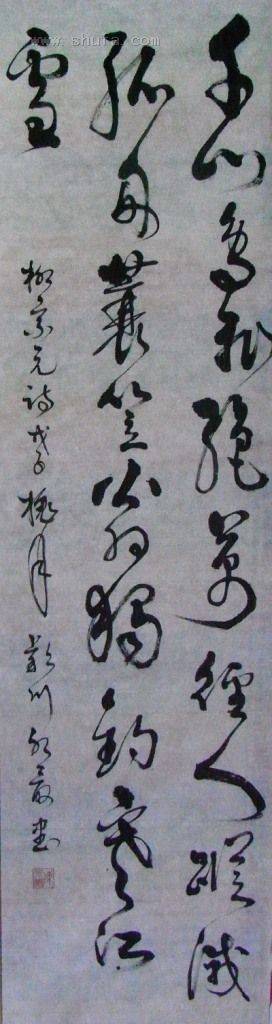 千山鳥飛絕萬徑人蹤滅
孤舟蓑笠翁獨釣寒江
雪
柳宗元詩戊子桃月
書
www.shufa.com